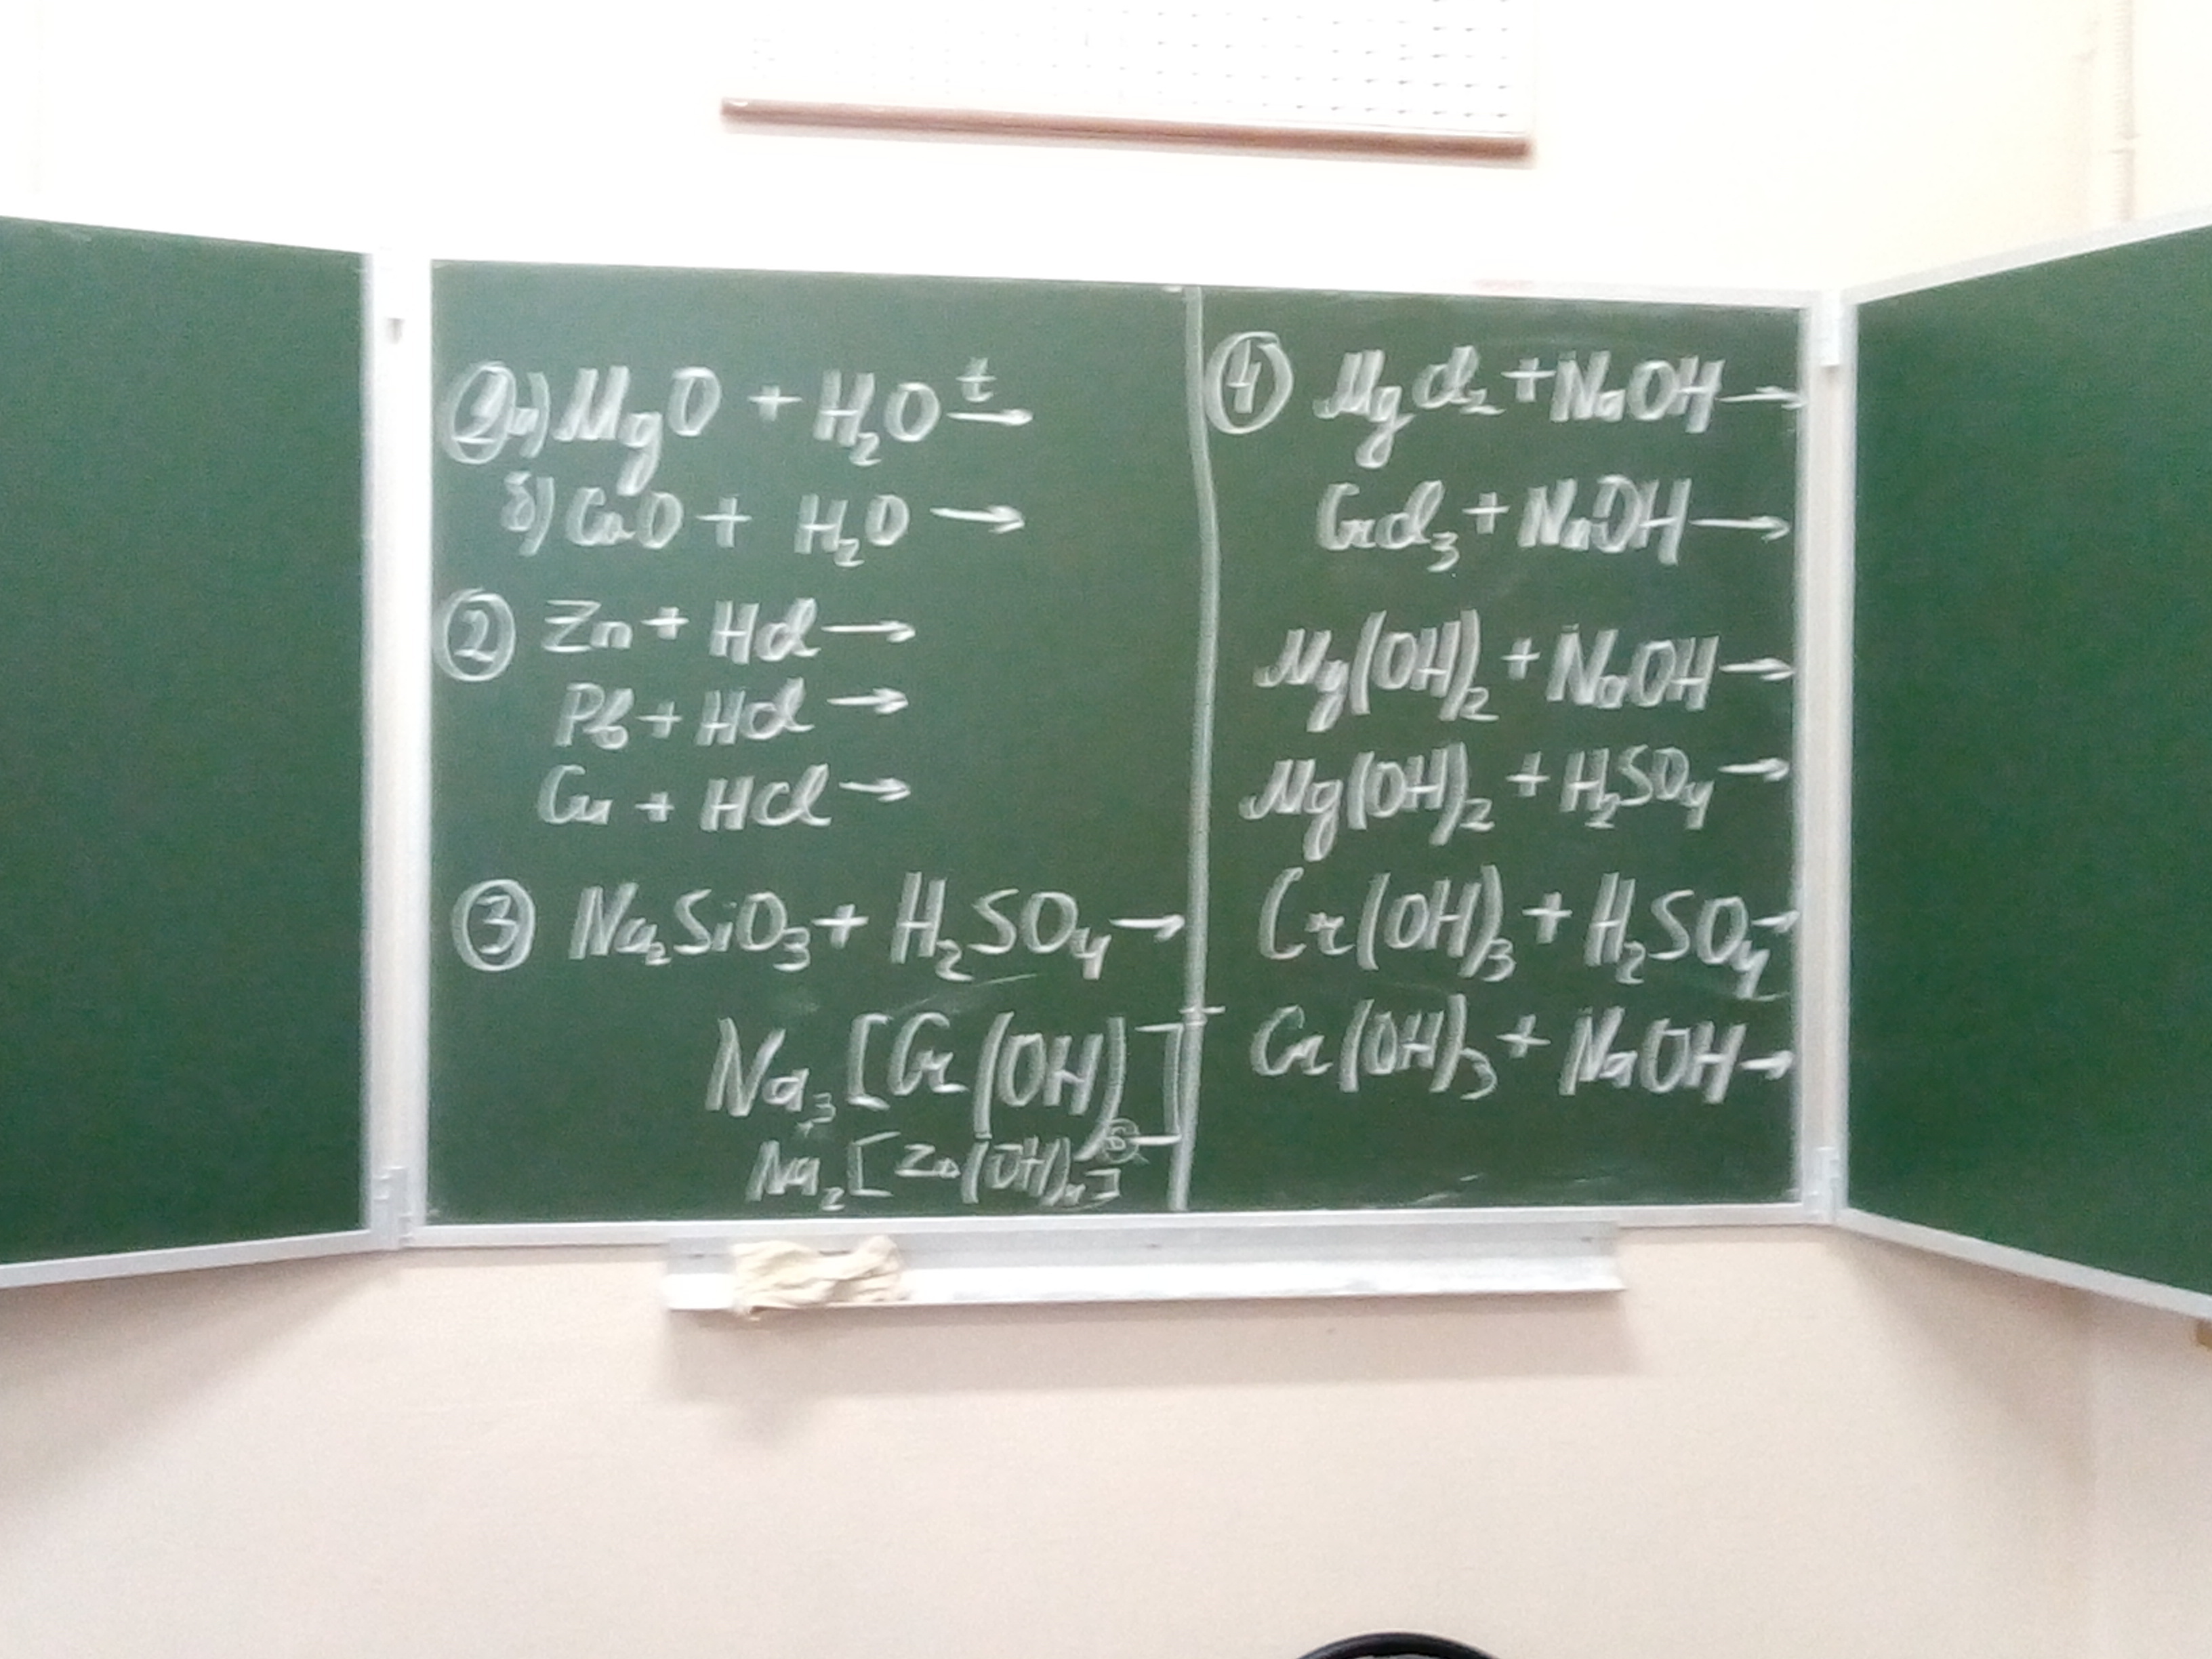 ① а) MgO + H₂O →ᵗ
б) CaO + H₂O →
② Zn + HCl →
Pb + HCl →
Cu + HCl →
③ Na₂SiO₃ + H₂SO₄ →
Na₃[Cr(OH)₆]
Na₂[Zn(OH)₄]
④ MgCl₂ + NaOH →
CrCl₃ + NaOH →
Mg(OH)₂ + NaOH →
Mg(OH)₂ + H₂SO₄ →
Cr(OH)₃ + H₂SO₄ →
Cr(OH)₃ + NaOH →